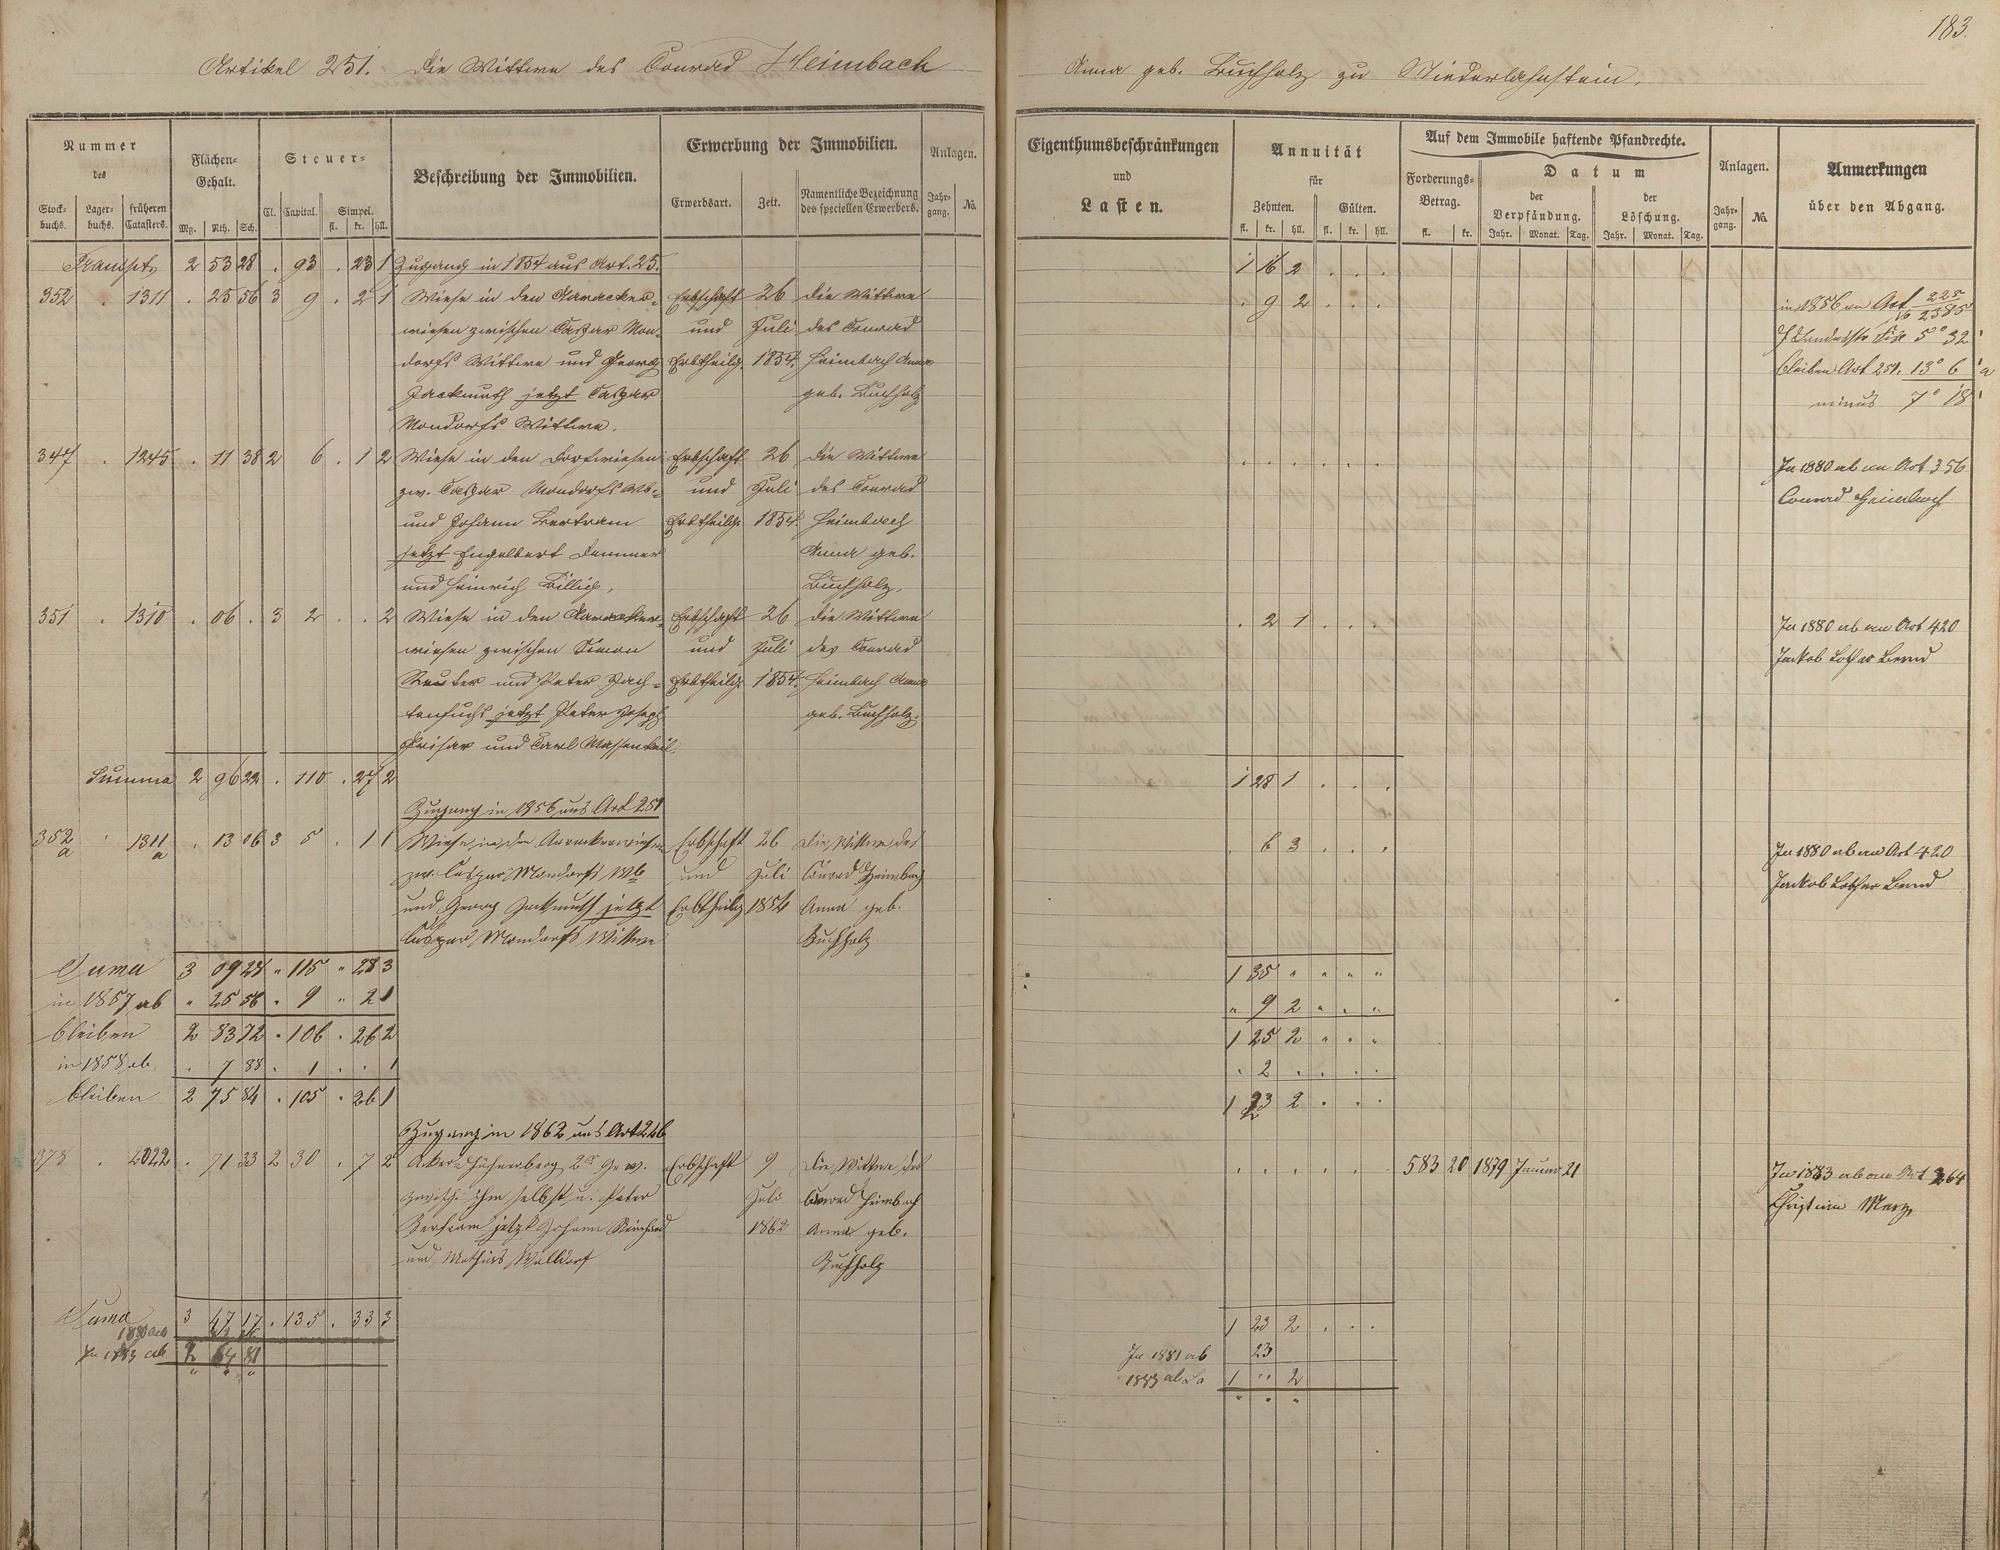 183.
Artikel 251. Die Wittwe des Conrad Heimbach Anna geb. Buchholz zu Niederlahnstein.
Nummer des
Stock-buchs. Lager-buchs. früheren Catasters.
Flächen-Gehalt.
Mg. Rth. Sch.
Steuer-
Cl. Capital. Simpel. fl. kr. hll.
Beschreibung der Immobilien.
Erwerbung der Immobilien.
Erwerbsart. Zeit. Namentliche Bezeichnung des speciellen Erwerbers.
Anlagen.
Jahr-gang. No.
Eigenthumsbeschränkungen
und
Lasten.
Annuität
für
Zehnten. Gülten.
fl. kr. hll. fl. kr. hll.
Auf dem Immobile haftende Pfandrechte.
Forderungs-Betrag. fl. kr.
Datum
der Verpfändung. der Löschung.
Jahr. Monat. Tag. Jahr. Monat. Tag.
Anlagen.
Jahr-gang. No.
Anmerkungen
über den Abgang.
Transpt. 2 53 28 . 93 . 23 1 Zugang in 1854 aus Art. 25. 1 16 2 . . .
352 . 1311 . 25 56 3 9 . 2 1 Wiese in den Aaracker- Erbschaft 26 die Wittwe . 9 2 . . . in 1856 an Art 225
wiesen zwischen Caspar Mon- und Juli des Conrad
dorfs Wittwe und Georg Erbtheilg. 1854. Heimbach Anna bleiben Art 251. 13° 6
Jackmuth jetzt Caspar geb. Buchholz minus 7° 18
Mondorfs Wittwe.
347 . 1245 . 11 38 2 6 . 1 2 Wiese in den Dorfwiesen Erbschaft 26 die Wittwe . . . . . . In 1880 ab an Art 356
zw. Caspar Mondorfs Wb. und Juli des Conrad Conrad Heimbach
und Johann Bertram Erbtheilg. 1854. Heimbach
jetzt Engelbert Dammer Anna geb.
und Heinrich Billig. Buchholz.
351 . 1310 . 06 . 3 2 . . 2 Wiese in den Aaracker- Erbschaft 26 die Wittwe . 2 1 . . . In 1880 ab an Art 420
wiesen zwischen Simon und Juli des Conrad Jackob Lothar Bernd
Reuter und Peter Erbtheilg. 1854. Heimbach Anna
jetzt Peter Joseph geb. Buchholz.
und Carl Massenkeil.
Summa 2 96 22 . 110 . 27 2 1 28 1 . . .
Zugang in 1856 aus Art 251
352a . 1311a . 13 06 3 5 . 1 1 Wiese in den Aarackerwiesen Erbschaft 26 Die Wittwe des . 6 3 . . . In 1880 ab an Art 420
zw. Caspar Mondorfs Wb und Juli Conrad Heimbach Jackob Lothar Bernd
und Georg Jackmuth jetzt Erbtheilg 1854 Anna geb.
Caspar Mondorfs Wittwe Buchholz
Suma 3 09 28 " 115 " 28 3 1 35 " " " "
in 1857 ab " 25 56 . 9 " 2 1 " 9 2 " . "
bleiben 2 83 72 . 106 . 26 2 1 25 2 " " "
in 1858 ab . 7 88 . 1 . . 1 . 2 . . . .
bleiben 2 75 84 . 105 . 26 1 1 23 2 . . .
Zugang in 1862 aus Art 246
378 . 4022 . 71 33 2 30 . 7 2 Acker Hühnerberg 2er Gew. Erbschaft 9 Die Wittwe des . . . . . . 583 20 1879 Januar 21 In 1883 ab an Art 264
zwisch. ihm selbst u. Peter Juli Conrad Heimbach Christian Merz
Bertram jetzt Johann 1862 Anna geb.
und Mathias Walldorf Buchholz
Suma 3 47 17 . 135 . 33 3 1 23 2 . . .
1880 ab
In 1883 ab 2 64 81 In 1881 ab 23
" " " 1883 ab 1 " 2
" " "